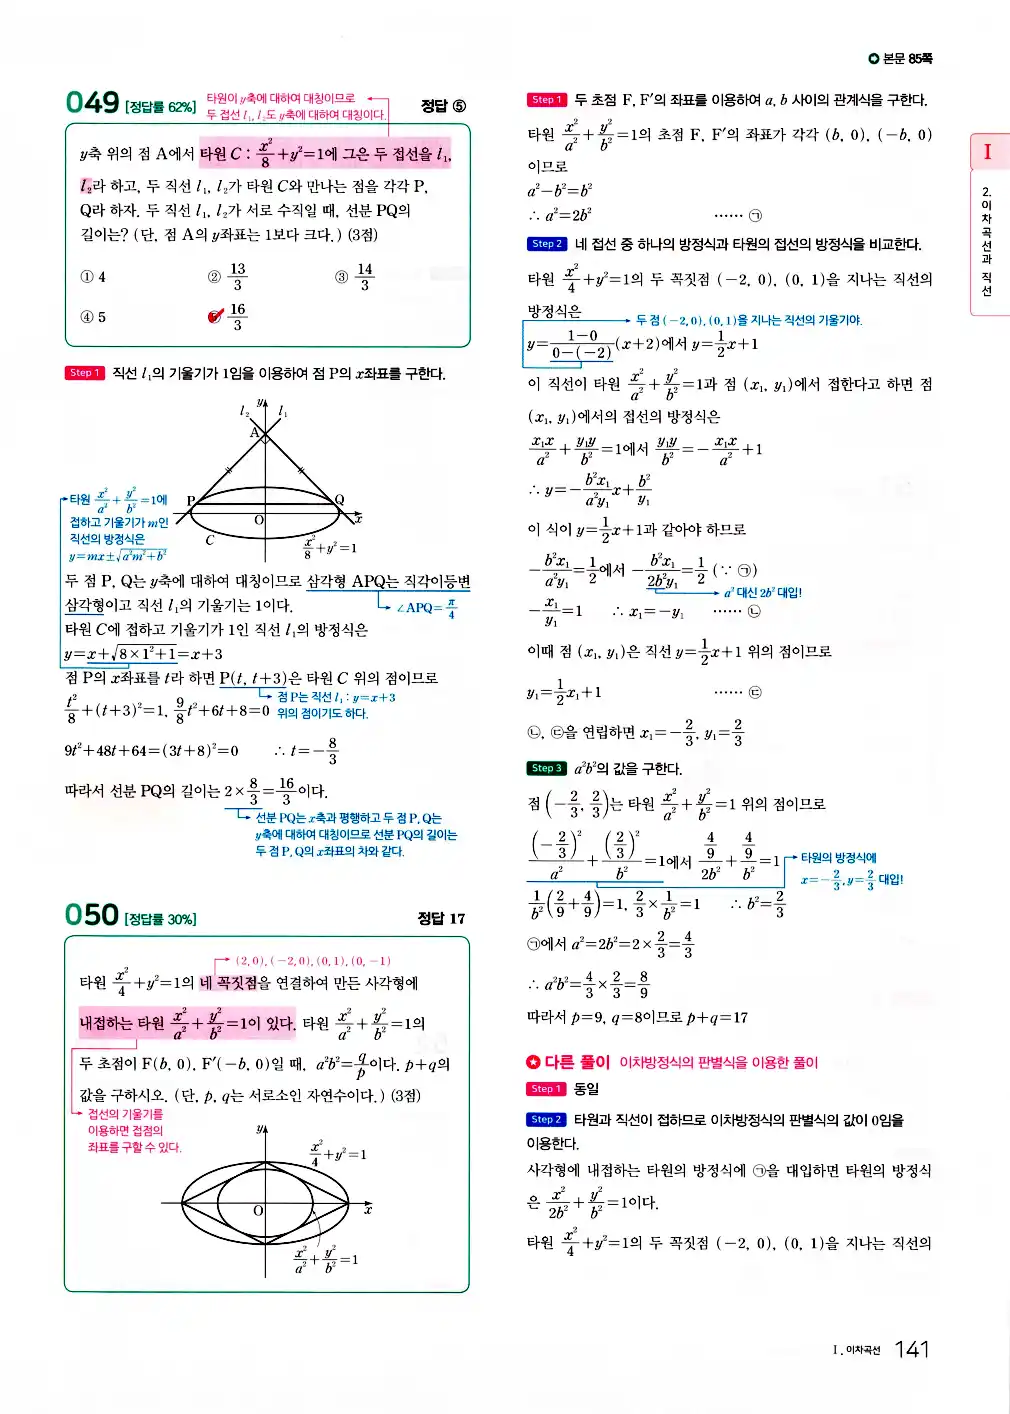 본문 85쪽
049 [정답률 62%]
타원이 y축에 대하여 대칭이므로
두 접선 l₁, l₂도 y축에 대하여 대칭이다.
정답 ⑤
y축 위의 점 A에서 타원 C : x²/8+y²=1에 그은 두 접선을 l₁,
l₂라 하고, 두 직선 l₁, l₂가 타원 C와 만나는 점을 각각 P,
Q라 하자. 두 직선 l₁, l₂가 서로 수직일 때, 선분 PQ의
길이는? (단, 점 A의 y좌표는 1보다 크다.) (3점)
① 4 ② 13/3 ③ 14/3
④ 5 ⑤ 16/3
Step 1 직선 l₁의 기울기가 1임을 이용하여 점 P의 x좌표를 구한다.
l₂ y l₁
A
P Q
O x
C x²/8+y²=1
타원 x²/a²+y²/b²=1에
접하고 기울기가 m인
직선의 방정식은
y=mx±√(a²m²+b²)
두 점 P, Q는 y축에 대하여 대칭이므로 삼각형 APQ는 직각이등변
삼각형이고 직선 l₁의 기울기는 1이다.
∠APQ=π/4
타원 C에 접하고 기울기가 1인 직선 l₁의 방정식은
y=x+√(8×1²+1)=x+3
점 P의 x좌표를 t라 하면 P(t, t+3)은 타원 C 위의 점이므로
점 P는 직선 l₁ : y=x+3
위의 점이기도 하다.
t²/8+(t+3)²=1, 9/8t²+6t+8=0
9t²+48t+64=(3t+8)²=0 ∴ t=-8/3
따라서 선분 PQ의 길이는 2×8/3=16/3이다.
선분 PQ는 x축과 평행하고 두 점 P, Q는
y축에 대하여 대칭이므로 선분 PQ의 길이는
두 점 P, Q의 x좌표의 차와 같다.
050 [정답률 30%]
정답 17
(2, 0), (-2, 0), (0, 1), (0, -1)
타원 x²/4+y²=1의 네 꼭짓점을 연결하여 만든 사각형에
내접하는 타원 x²/a²+y²/b²=1이 있다. 타원 x²/a²+y²/b²=1의
두 초점이 F(b, 0), F′(-b, 0)일 때, a²b²=q/p이다. p+q의
값을 구하시오. (단, p, q는 서로소인 자연수이다.) (3점)
접선의 기울기를
이용하면 접점의
좌표를 구할 수 있다.
y
x²/4+y²=1
O x
x²/a²+y²/b²=1
Step 1 두 초점 F, F′의 좌표를 이용하여 a, b 사이의 관계식을 구한다.
타원 x²/a²+y²/b²=1의 초점 F, F′의 좌표가 각각 (b, 0), (-b, 0)
이므로
a²-b²=b²
∴ a²=2b² …… ㉠
Step 2 네 접선 중 하나의 방정식과 타원의 접선의 방정식을 비교한다.
타원 x²/4+y²=1의 두 꼭짓점 (-2, 0), (0, 1)을 지나는 직선의
방정식은
두 점 (-2, 0), (0, 1)을 지나는 직선의 기울기야.
y=(1-0)/(0-(-2))(x+2)에서 y=1/2x+1
이 직선이 타원 x²/a²+y²/b²=1과 점 (x₁, y₁)에서 접한다고 하면 점
(x₁, y₁)에서의 접선의 방정식은
x₁x/a²+y₁y/b²=1에서 y₁y/b²=-x₁x/a²+1
∴ y=-b²x₁/a²y₁x+b²/y₁
이 식이 y=1/2x+1과 같아야 하므로
-b²x₁/a²y₁=1/2에서 -b²x₁/2b²y₁=1/2 (∵ ㉠)
a² 대신 2b² 대입!
-x₁/y₁=1 ∴ x₁=-y₁ …… ㉡
이때 점 (x₁, y₁)은 직선 y=1/2x+1 위의 점이므로
y₁=1/2x₁+1 …… ㉢
㉡, ㉢을 연립하면 x₁=-2/3, y₁=2/3
Step 3 a²b²의 값을 구한다.
점 (-2/3, 2/3)는 타원 x²/a²+y²/b²=1 위의 점이므로
(-2/3)²/a²+(2/3)²/b²=1에서 4/9/2b²+4/9/b²=1
타원의 방정식에
x=-2/3, y=2/3 대입!
1/b²(2/9+4/9)=1, 2/3×1/b²=1 ∴ b²=2/3
㉠에서 a²=2b²=2×2/3=4/3
∴ a²b²=4/3×2/3=8/9
따라서 p=9, q=8이므로 p+q=17
다른 풀이 이차방정식의 판별식을 이용한 풀이
Step 1 동일
Step 2 타원과 직선이 접하므로 이차방정식의 판별식의 값이 0임을
이용한다.
사각형에 내접하는 타원의 방정식에 ㉠을 대입하면 타원의 방정식
은 x²/2b²+y²/b²=1이다.
타원 x²/4+y²=1의 두 꼭짓점 (-2, 0), (0, 1)을 지나는 직선의
I
2. 이차곡선과 직선
I. 이차곡선 141